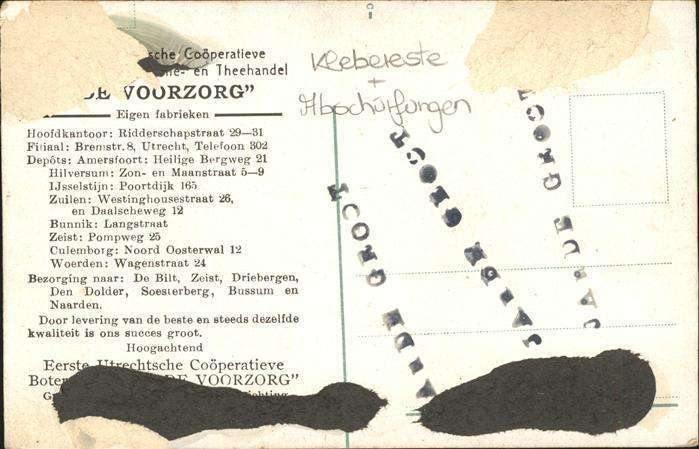 sche Coöperatieve
en Theehandel
DE VOORZORG"
Eigen fabrieken
Hoofdkantoor: Ridderschapstraat 29—31
Filiaal: Bremstr. 8, Utrecht, Telefoon 302
Depôts: Amersfoort: Heilige Bergweg 21
Hilversum: Zon- en Maanstraat 5—9
IJsselstijn: Poortdijk 165
Zuilen: Westinghousestraat 26,
en Daalscheweg 12
Bunnik: Langstraat
Zeist: Pompweg 25
Culemborg: Noord Oosterwal 12
Woerden: Wagenstraat 24
Bezorging naar: De Bilt, Zeist, Driebergen,
Den Dolder, Soesterberg, Bussum en
Naarden.
Door levering van de beste en steeds dezelfde
kwaliteit is ons succes groot.
Hoogachtend
Eerste Utrechtsche Coöperatieve
Boter DE VOORZORG"
Klebereste
+
Abschürfungen